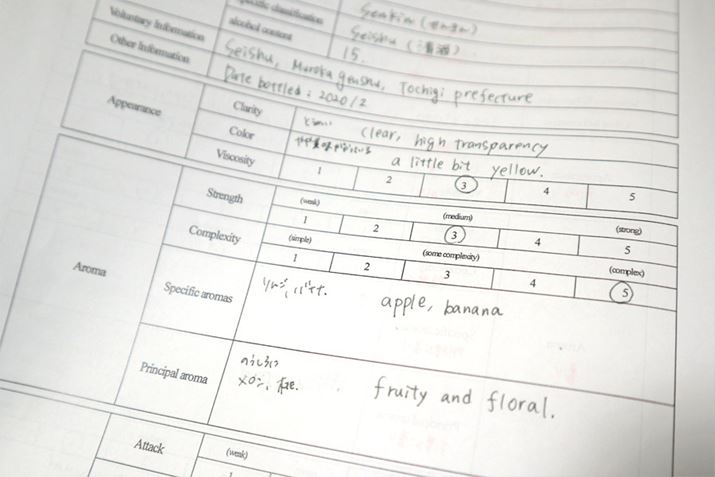 Specific classification
Senkin (せんきん)
Voluntary Information
alcohol content
Seishu (清酒)
Other Information
15.
Seishu, Muroka genshu, Tochigi prefecture
Date bottled : 2020/2
Appearance
Clarity
clear, high transparency
Color
a little bit yellow.
Viscosity
1 2 3 4 5
Aroma
Strength
(weak) (medium) (strong)
1 2 3 4 5
Complexity
(simple) (some complexity) (complex)
1 2 3 4 5
Specific aromas
リンゴ, バナナ.
apple, banana
Principal aroma
メロン, 花.
fruity and floral.
Attack
(weak)
1